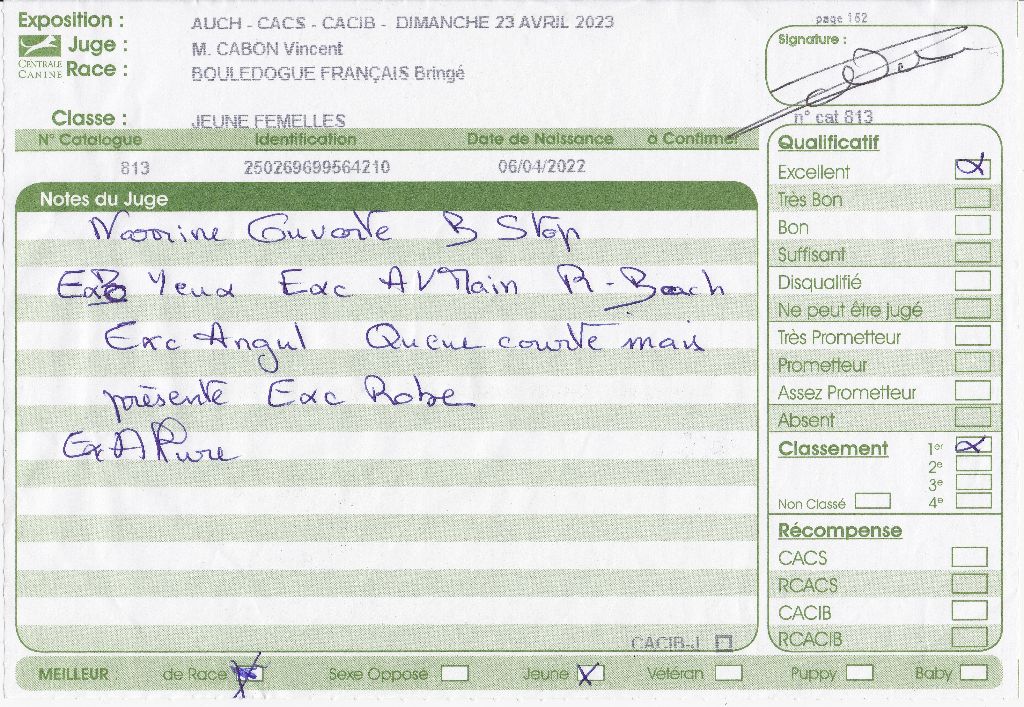 Exposition : AUCH - CACS - CACIB - DIMANCHE 23 AVRIL 2023
page 162
CENTRALE CANINE
Juge : M. CABON Vincent
Signature :
Race : BOULEDOGUE FRANÇAIS Bringé
Classe : JEUNE FEMELLES
n° cat 813
N° Catalogue Identification Date de Naissance à Confirmer
813 250269699564210 06/04/2022
Notes du Juge
Narrine Ouverte B Stop
Yeux Exc AV Main R-Bach
Exc Angul Queue courte mais
présente Exc Robe
Ex Alure
CACIB-J
Qualificatif
Excellent
Très Bon
Bon
Suffisant
Disqualifié
Ne peut être jugé
Très Prometteur
Prometteur
Assez Prometteur
Absent
Classement 1er
2e
3e
Non Classé 4e
Récompense
CACS
RCACS
CACIB
RCACIB
MEILLEUR : de Race Sexe Opposé Jeune Vétéran Puppy Baby